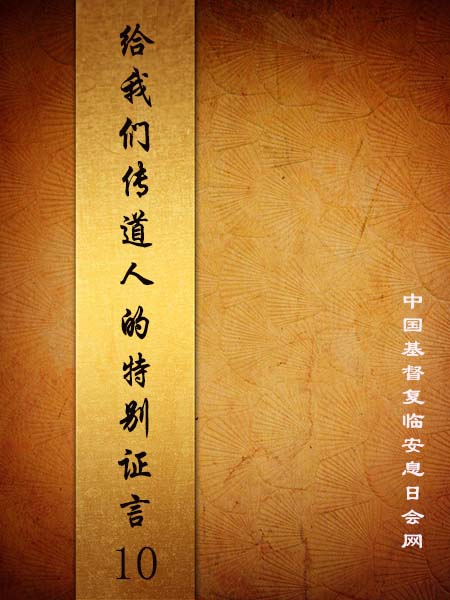 给我们传道人的特别证言10
中国基督复临安息日会网